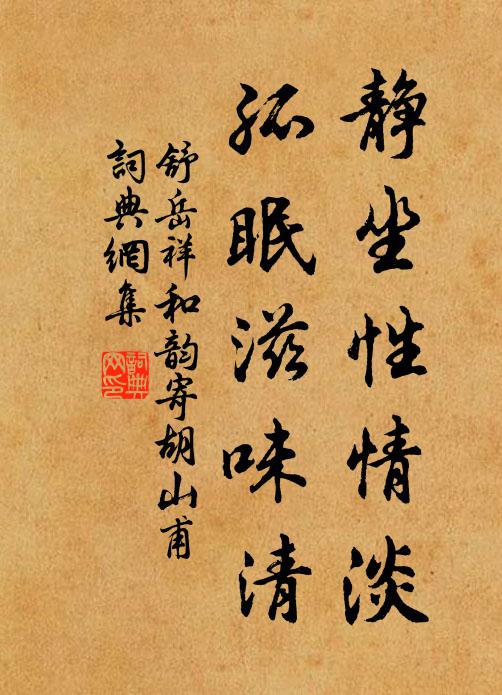 静坐性情淡
孤眠滋味清
舒岳祥和韵寄胡山甫
詞典網集
詞典網印